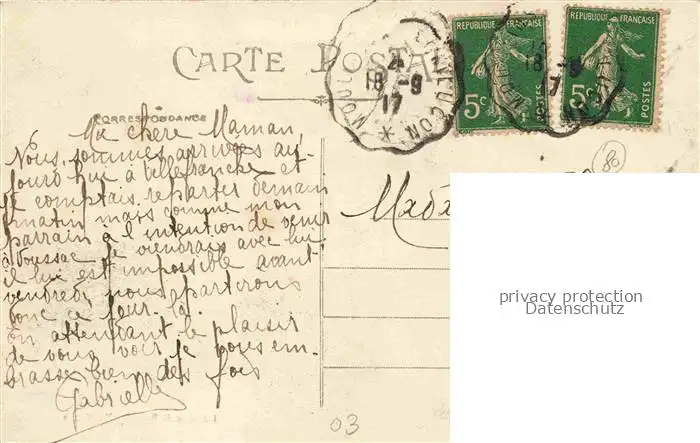 CARTE POSTALE
CORRESPONDANCE
REPUBLIQUE FRANÇAISE
5c POSTES
REPUBLIQUE FRANÇAISE
5c POSTES
18 -9
17
18 -9
17
80
Ma chere Maman,
Nous sommes arrivées au-
jourd'hui à Villefranche et
je comptais repartir demain
matin mais comme mon
parrain à l'intention de venir
à Boussac je viendrais avec lui
il lui est impossible avant
vendredi nous partirons
donc ce jour là.
En attendant le plaisir
de vous voir je vous em-
brasse bien des fois
Gabrielle
Mada
privacy protection
Datenschutz
03